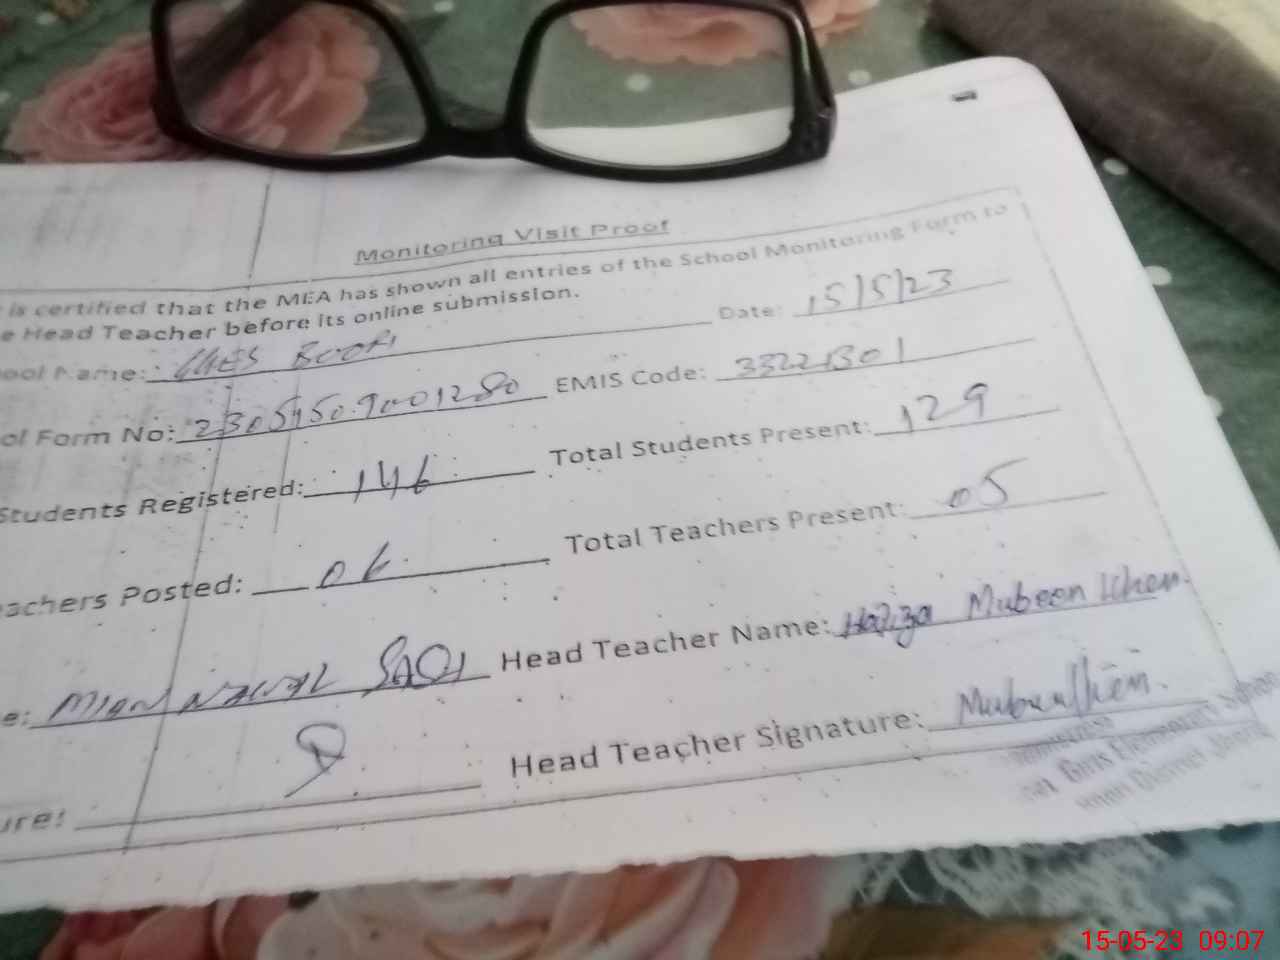 Monitoring Visit Proof
is certified that the MEA has shown all entries of the School Monitoring Form to
e Head Teacher before its online submission.
ool Name: GGES BOORI Date: 15/5/23
ol Form No: EMIS Code:
Students Registered: 146 Total Students Present: 129
achers Posted: 06 Total Teachers Present: 05
e: MIAN NAWAL Head Teacher Name: Mubeen Khan
ure: Head Teacher Signature:
Girls Elementary School
15-05-23 09:07